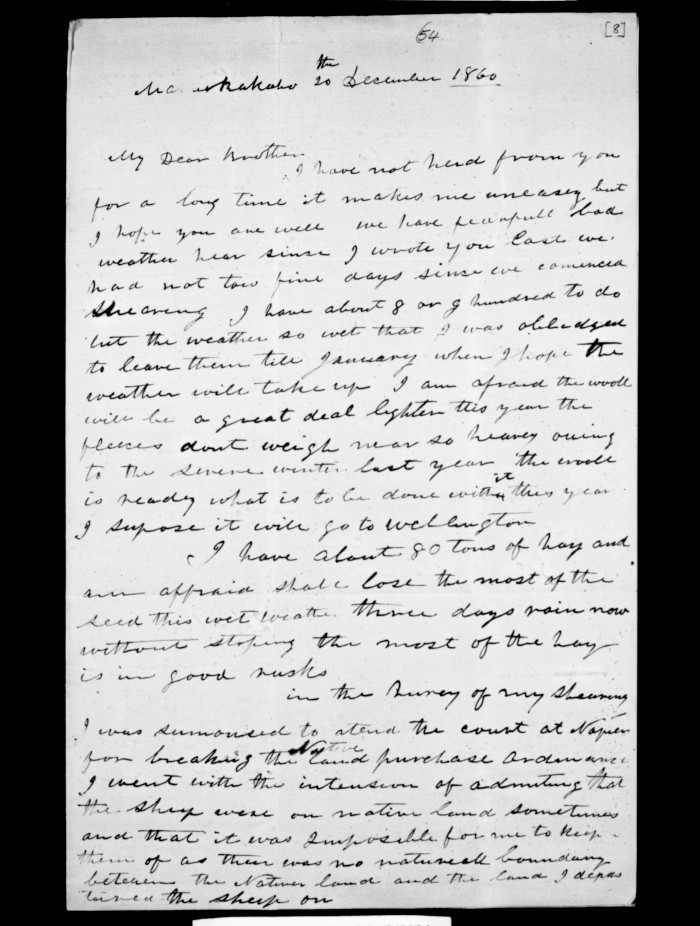 54
[8]
20th December 1860
My Dear Brother
I have not herd from you
for a long time it makes me uneasey but
I hope you are well we have fearfull bad
weather hear sinse I wrote you Last we
had not tow fine days sinse we comenced
shearing I have about 8 or 9 hundred to do
but the weather so wet that I was obledged
to leave them till January when I hope the
weather will take up I am afraid the wooll
will be a great deal lighter this year the
fleeces dont weigh near so heavey owing
to the severe winter last year the wooll
is ready what is to be done with it this year
I supose it will go to Wellington
I have about 80 tons of hay and
am affraid shall lose the most of the
seed this wet weather three days rain now
without stoping the most of the hay
is in good rusks
in the hurey of my shearing
I was sumonsed to atend the court at Napier
for breaking the Native land purchase Ordinance
I went with the intension of admiting that
the sheep were on native land sometimes
and that it was Imposible for me to keep
them of as their was no natureall boundary
between the Natives land and the land I depas
tured the sheep on